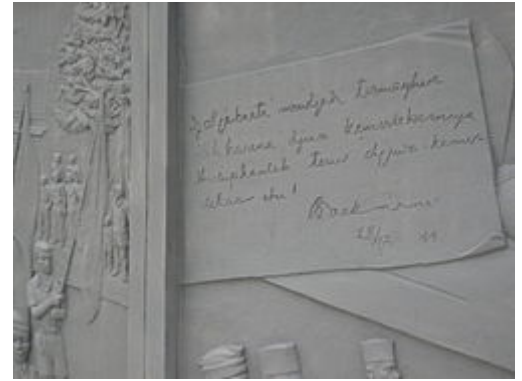 Djokjakarta mendjadi termasjhur
oleh karena djiwa kemerdekaannya
Hidupkanlah terus djjiwa kemer-
dekaan itu!
Soekarno
28/12 49.